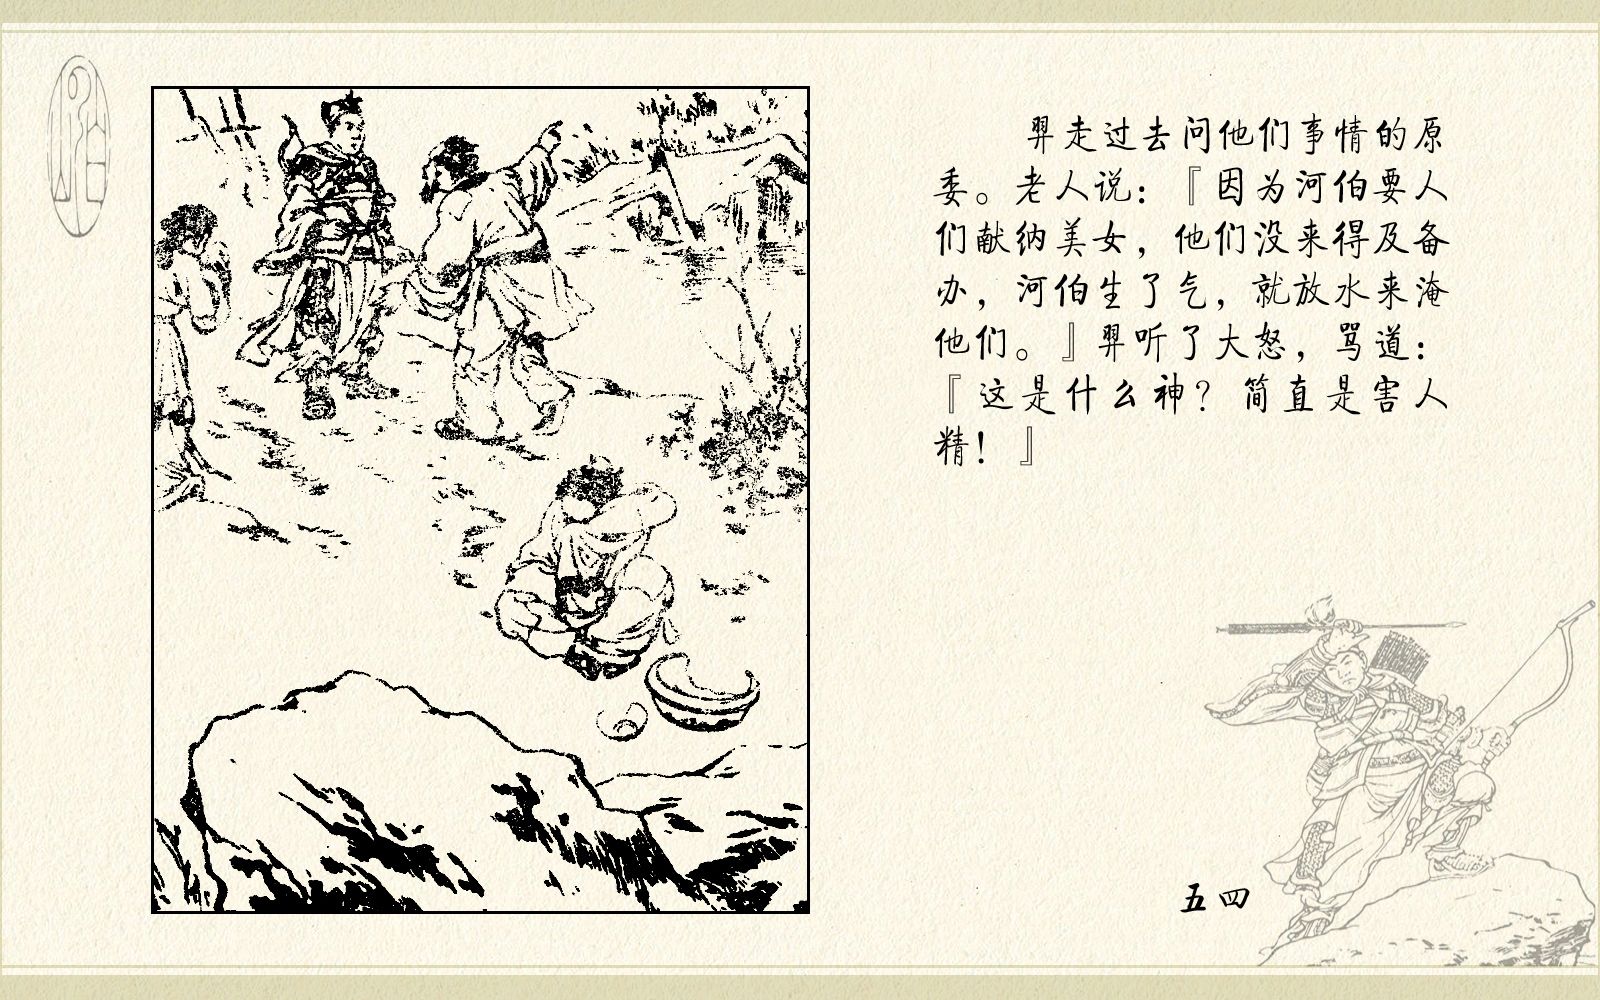 羿走过去问他们事情的原
委。老人说：『因为河伯要人
们献纳美女，他们没来得及备
办，河伯生了气，就放水来淹
他们。』羿听了大怒，骂道：
『这是什么神？简直是害人
精！』
五四